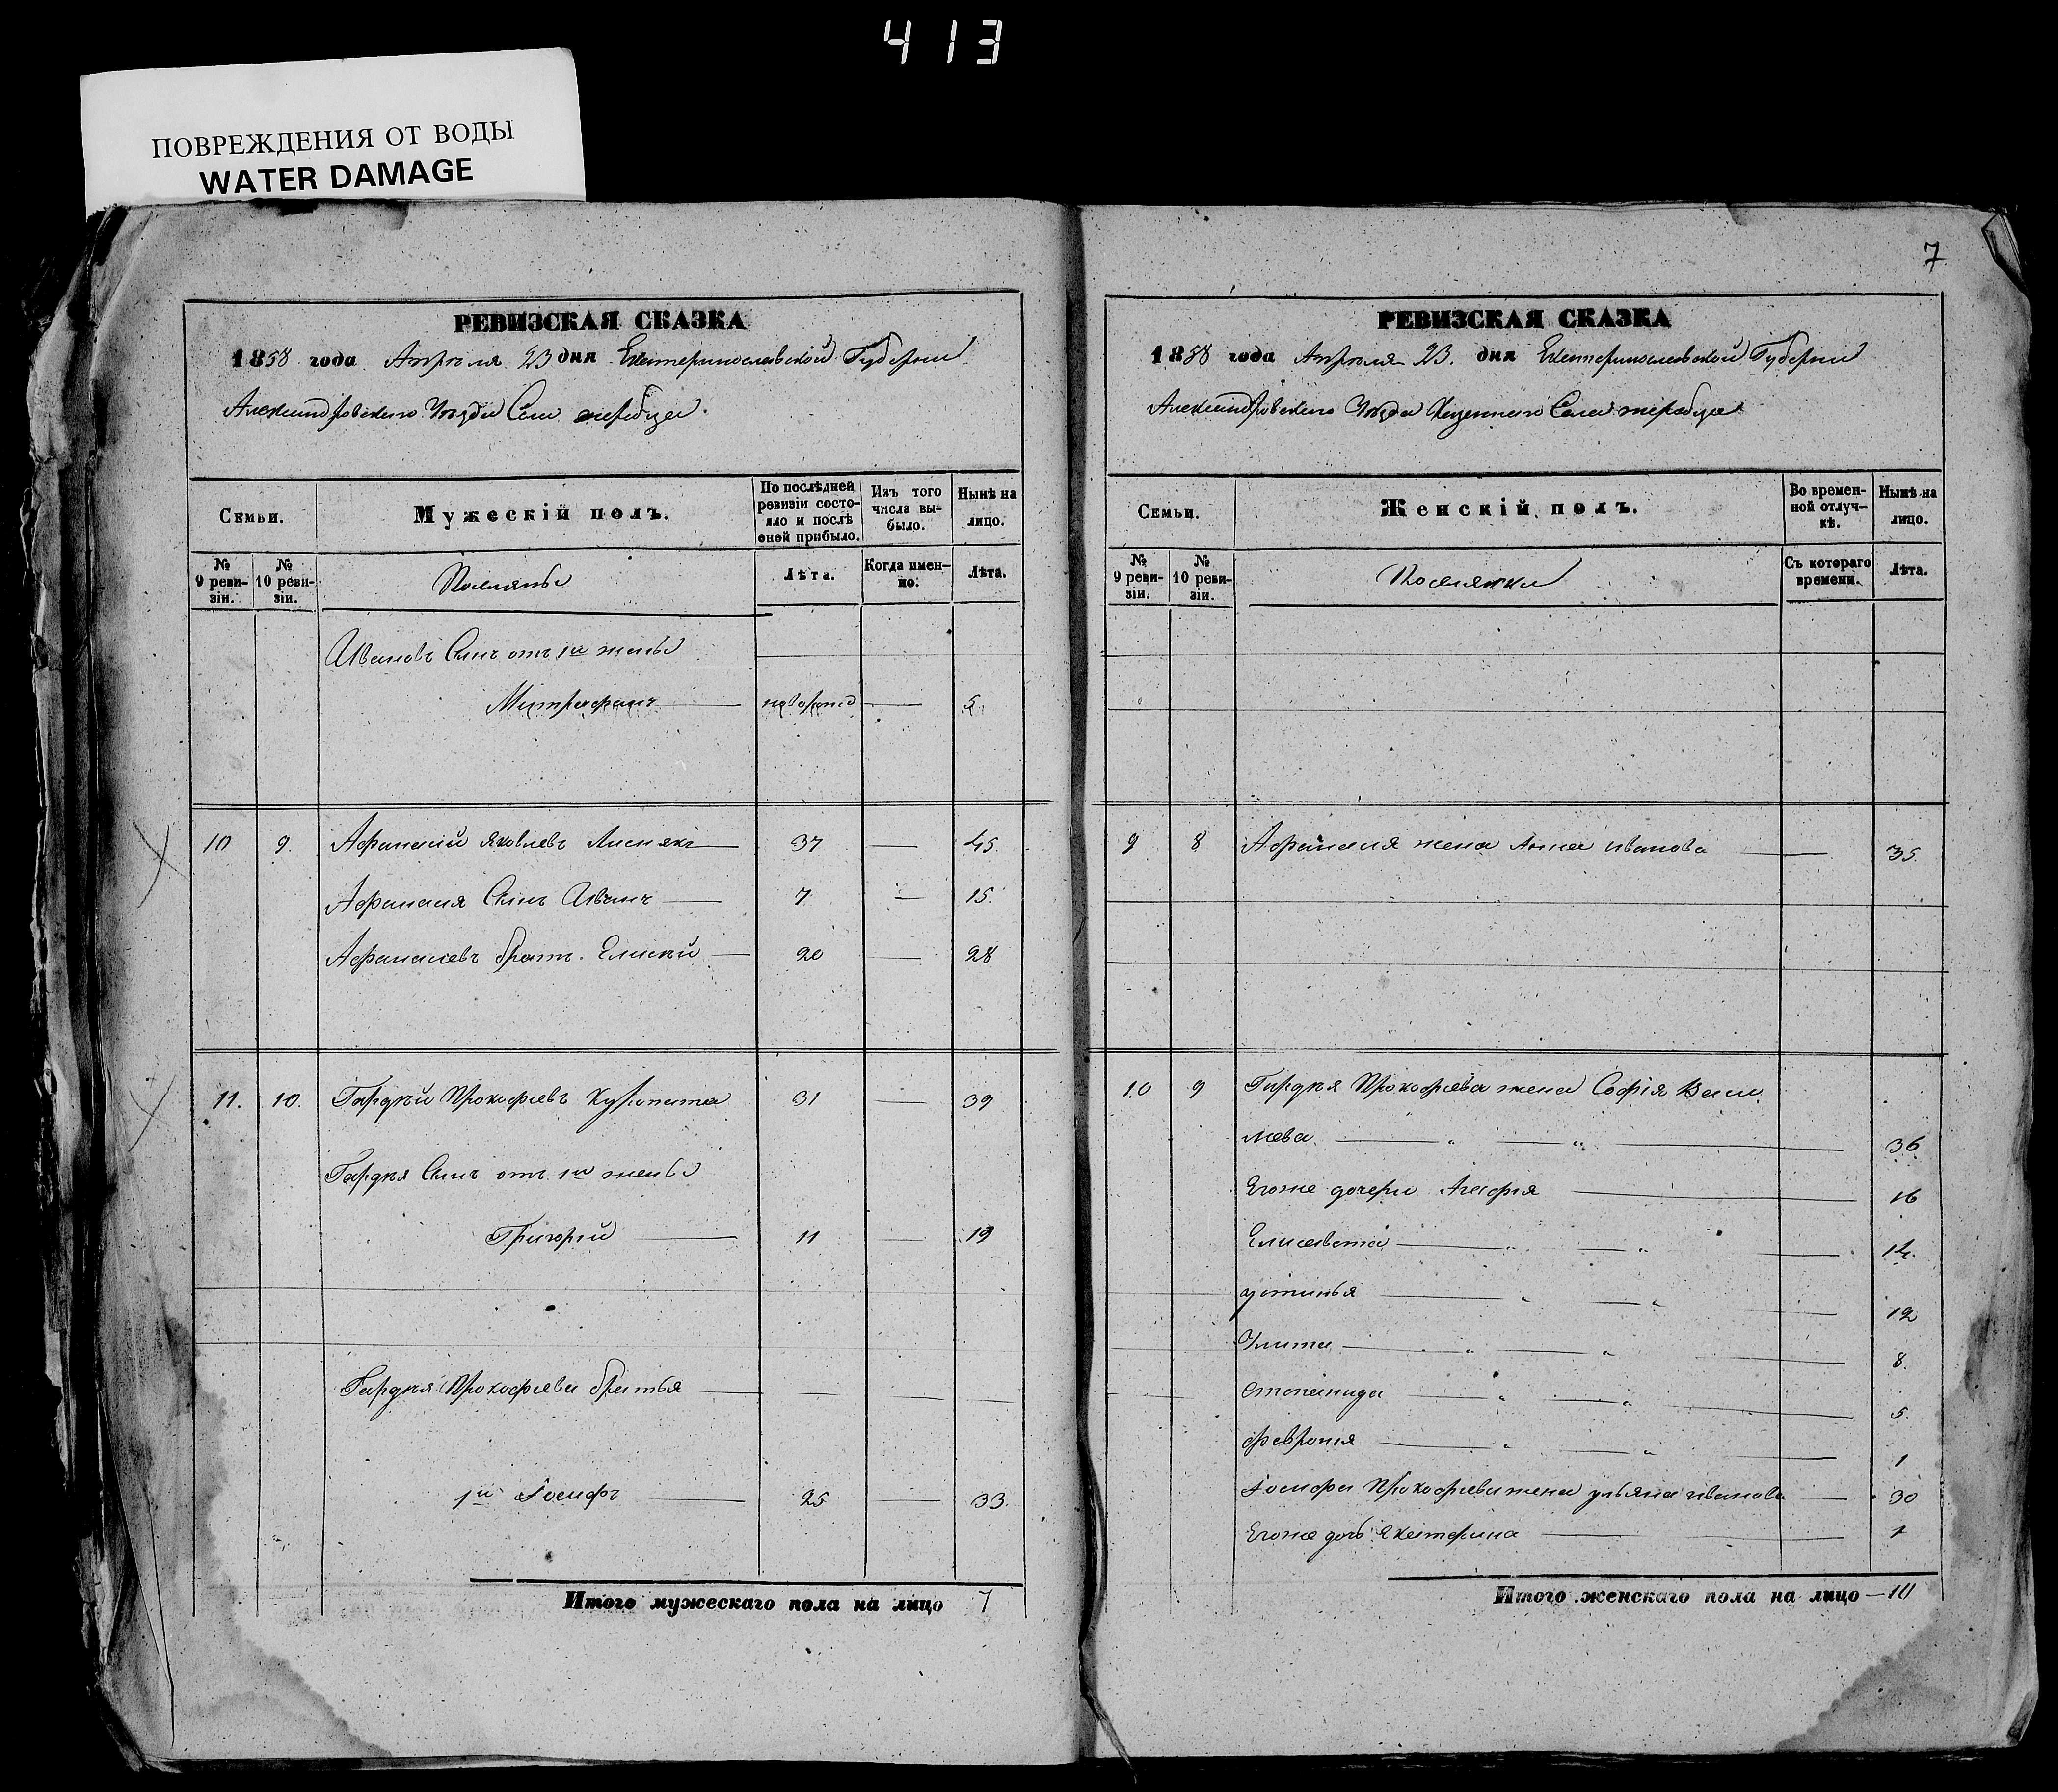 413
ПОВРЕЖДЕНИЯ ОТ ВОДЫ
WATER DAMAGE
РЕВИЗСКАЯ СКАЗКА
1858 года Апрѣля 23 дня Екатеринославской Губерніи
Александровскаго Уѣзда Села
Семьи.
Мужескій полъ.
По послѣдней ревизіи состояло и послѣ оной прибыло.
Изъ того числа выбыло.
Нынѣ на лицо.
№ 9 ревизіи.
№ 10 ревизіи.
Поселяне
Лѣта.
Когда именно.
Лѣта.
Ивановъ Сынъ отъ 1й жены
Митрофанъ новорожд 5
10 9 Афанасій Яковлевъ Лиснякъ 37 45
Афанасия Сынъ Иванъ 7 15
Афанасиевъ братъ Елисей 20 28
11. 10. Гардѣй Прокофиевъ 31 39
Гардѣя Сынъ отъ 1й жены
Григорій 11 19
Гардѣя Прокофиева братья
1й Іосифъ 25 33.
Итого мужескаго пола на лицо 7
7
РЕВИЗСКАЯ СКАЗКА
1858 года Апрѣля 23. дня Екатеринославской Губерніи
Александровскаго Уѣзда Казеннаго Села
Семьи.
Женскій полъ.
Во временной отлучкѣ.
Нынѣ на лицо.
№ 9 ревизіи.
№ 10 ревизіи.
Поселянки
Съ котораго времени.
Лѣта.
9 8 Афанасия жена Анна Иванова 35.
10 9 Гардѣя Прокофиева жена Софія Васи
лева 36
Егоже дочери Агафия 16
Елисавета 14.
устинья 12
Улита 8.
степанида 5.
феврония 1
Іосифа Прокофиева жена ульяна иванова 30
Егоже дочь Екатерина 1
Итого женскаго пола на лицо — 10